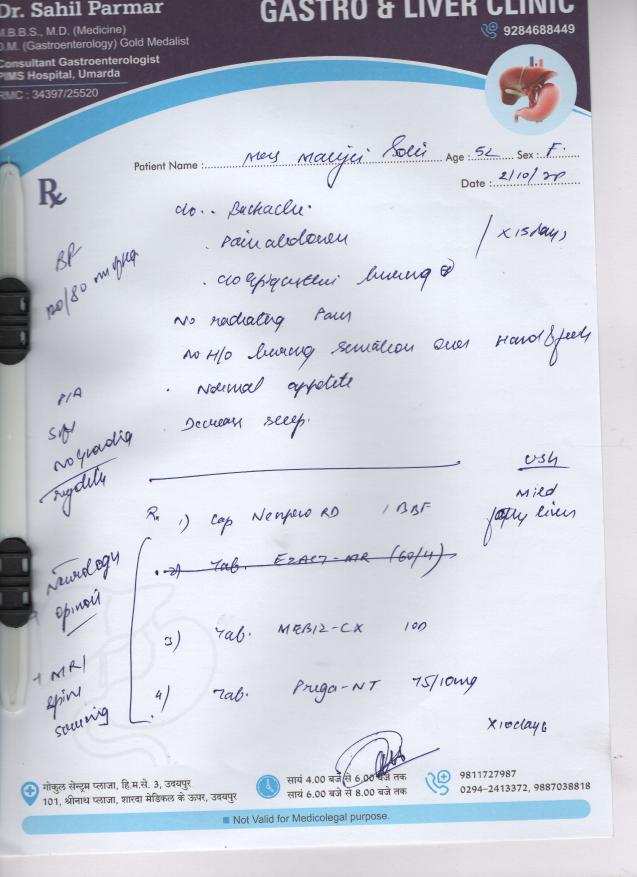 Dr. Sahil Parmar
M.B.B.S., M.D. (Medicine)
D.M. (Gastroenterology) Gold Medalist
Consultant Gastroenterologist
PIMS Hospital, Umarda
RMC : 34397/25520
GASTRO & LIVER CLINIC
9284688449
Patient Name : Age : 52 Sex : F.
Date : 2/10/
Rx
c/o ..
. Pain abdomen / x 15 days
. c/o burning
No radiating Pain
No H/o burning sensation over Hand & feet
. Normal appetite
. Decrease sleep.
BP
120/80 mmHg
P/A
Soft
No guarding
rigidity
USG
Mild
fatty liver
Rx 1) Cap RD 1 BBF
2) Tab. (60/4)
3) Tab. MEBIZ-CX 1OD
4) Tab. Prega-NT 75/10mg
x 10 days
Neurology
opinion
+ MRI
spine
गोकुल सेन्ट्रम प्लाजा, हि.म.से. 3, उदयपुर
101, श्रीनाथ प्लाजा, शारदा मेडिकल के ऊपर, उदयपुर
सायं 4.00 बजे से 6.00 बजे तक
सायं 6.00 बजे से 8.00 बजे तक
9811727987
0294-2413372, 9887038818
Not Valid for Medicolegal purpose.